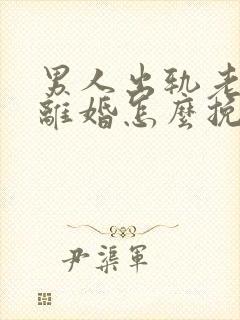 男人出轨老
離婚怎麼挽
尹渠軍